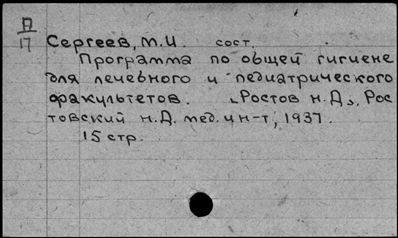 П
П
Сергеев, М.И. сост.
Программа по общей гигиене
для лечебного и педиатрического
факультетов. "Ростов н.Д", Рос-
товский н.Д. мед. ин-т, 1937.
15 стр.